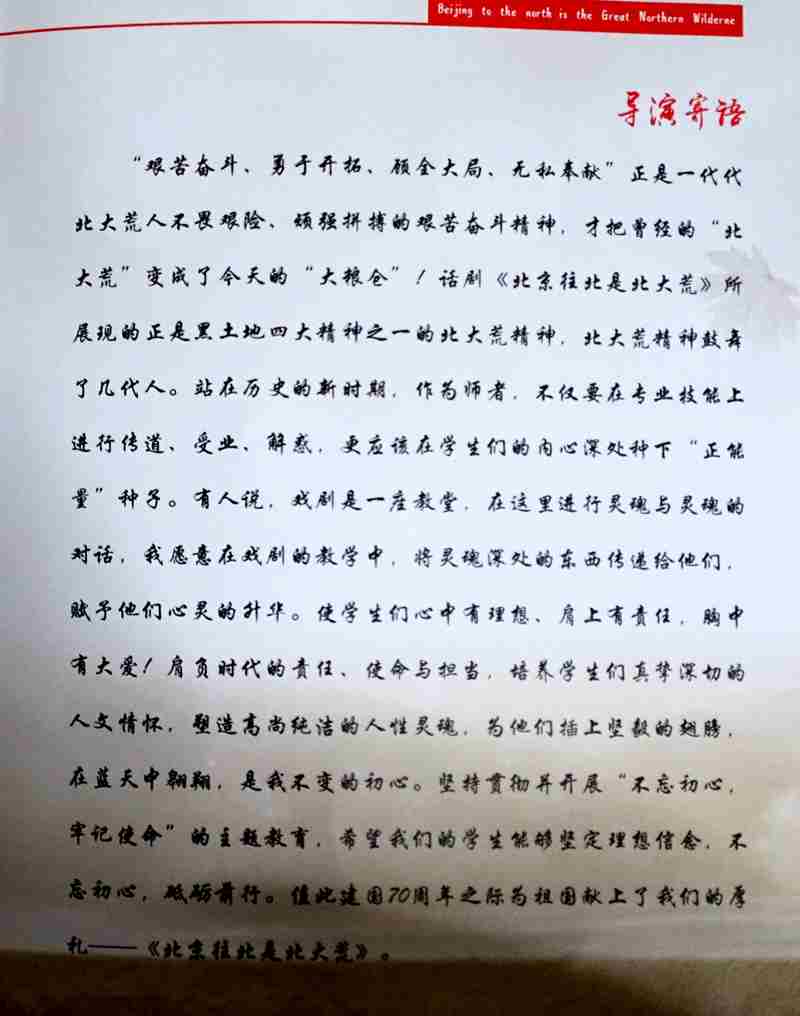 Beijing to the north is the Great Northern Wilderne
导演寄语
“艰苦奋斗、勇于开拓、顾全大局、无私奉献”正是一代代
北大荒人不畏艰险、顽强拼搏的艰苦奋斗精神，才把曾经的“北
大荒”变成了今天的“大粮仓”！话剧《北京往北是北大荒》所
展现的正是黑土地四大精神之一的北大荒精神，北大荒精神鼓舞
了几代人。站在历史的新时期，作为师者，不仅要在专业技能上
进行传道、受业、解惑，更应该在学生们的内心深处种下“正能
量”种子。有人说，戏剧是一座教堂，在这里进行灵魂与灵魂的
对话，我愿意在戏剧的教学中，将灵魂深处的东西传递给他们，
赋予他们心灵的升华。使学生们心中有理想、肩上有责任，胸中
有大爱！肩负时代的责任、使命与担当，培养学生们真挚深切的
人文情怀，塑造高尚纯洁的人性灵魂，为他们插上坚毅的翅膀，
在蓝天中翱翔，是我不变的初心。坚持贯彻并开展“不忘初心，
牢记使命”的主题教育，希望我们的学生能够坚定理想信念，不
忘初心，砥砺前行。值此建国70周年之际为祖国献上了我们的厚
礼——《北京往北是北大荒》。